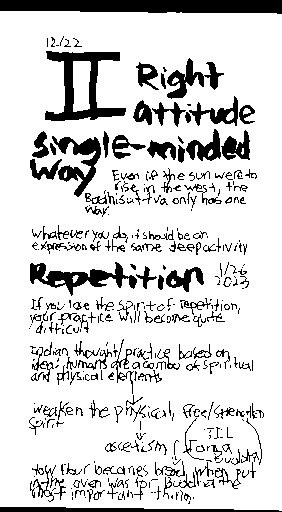 12/22
II Right
attitude
single-minded
way Even if the sun were to
rise in the west, the
Bodhisattva only has one
way.
whatever you do, it should be an
expression of the same deep activity
Repetition 1/26
2023
If you lose the spirit of repetition,
your practice will become quite
difficult
Indian thought/practice based on
idea: humans are a combo of spiritual
and physical elements
weaken the physical, free/strengthen
spirit
TIL
asceticism
Buddha
how flour becomes bread when put
in the oven was for Buddha the
most important thing.